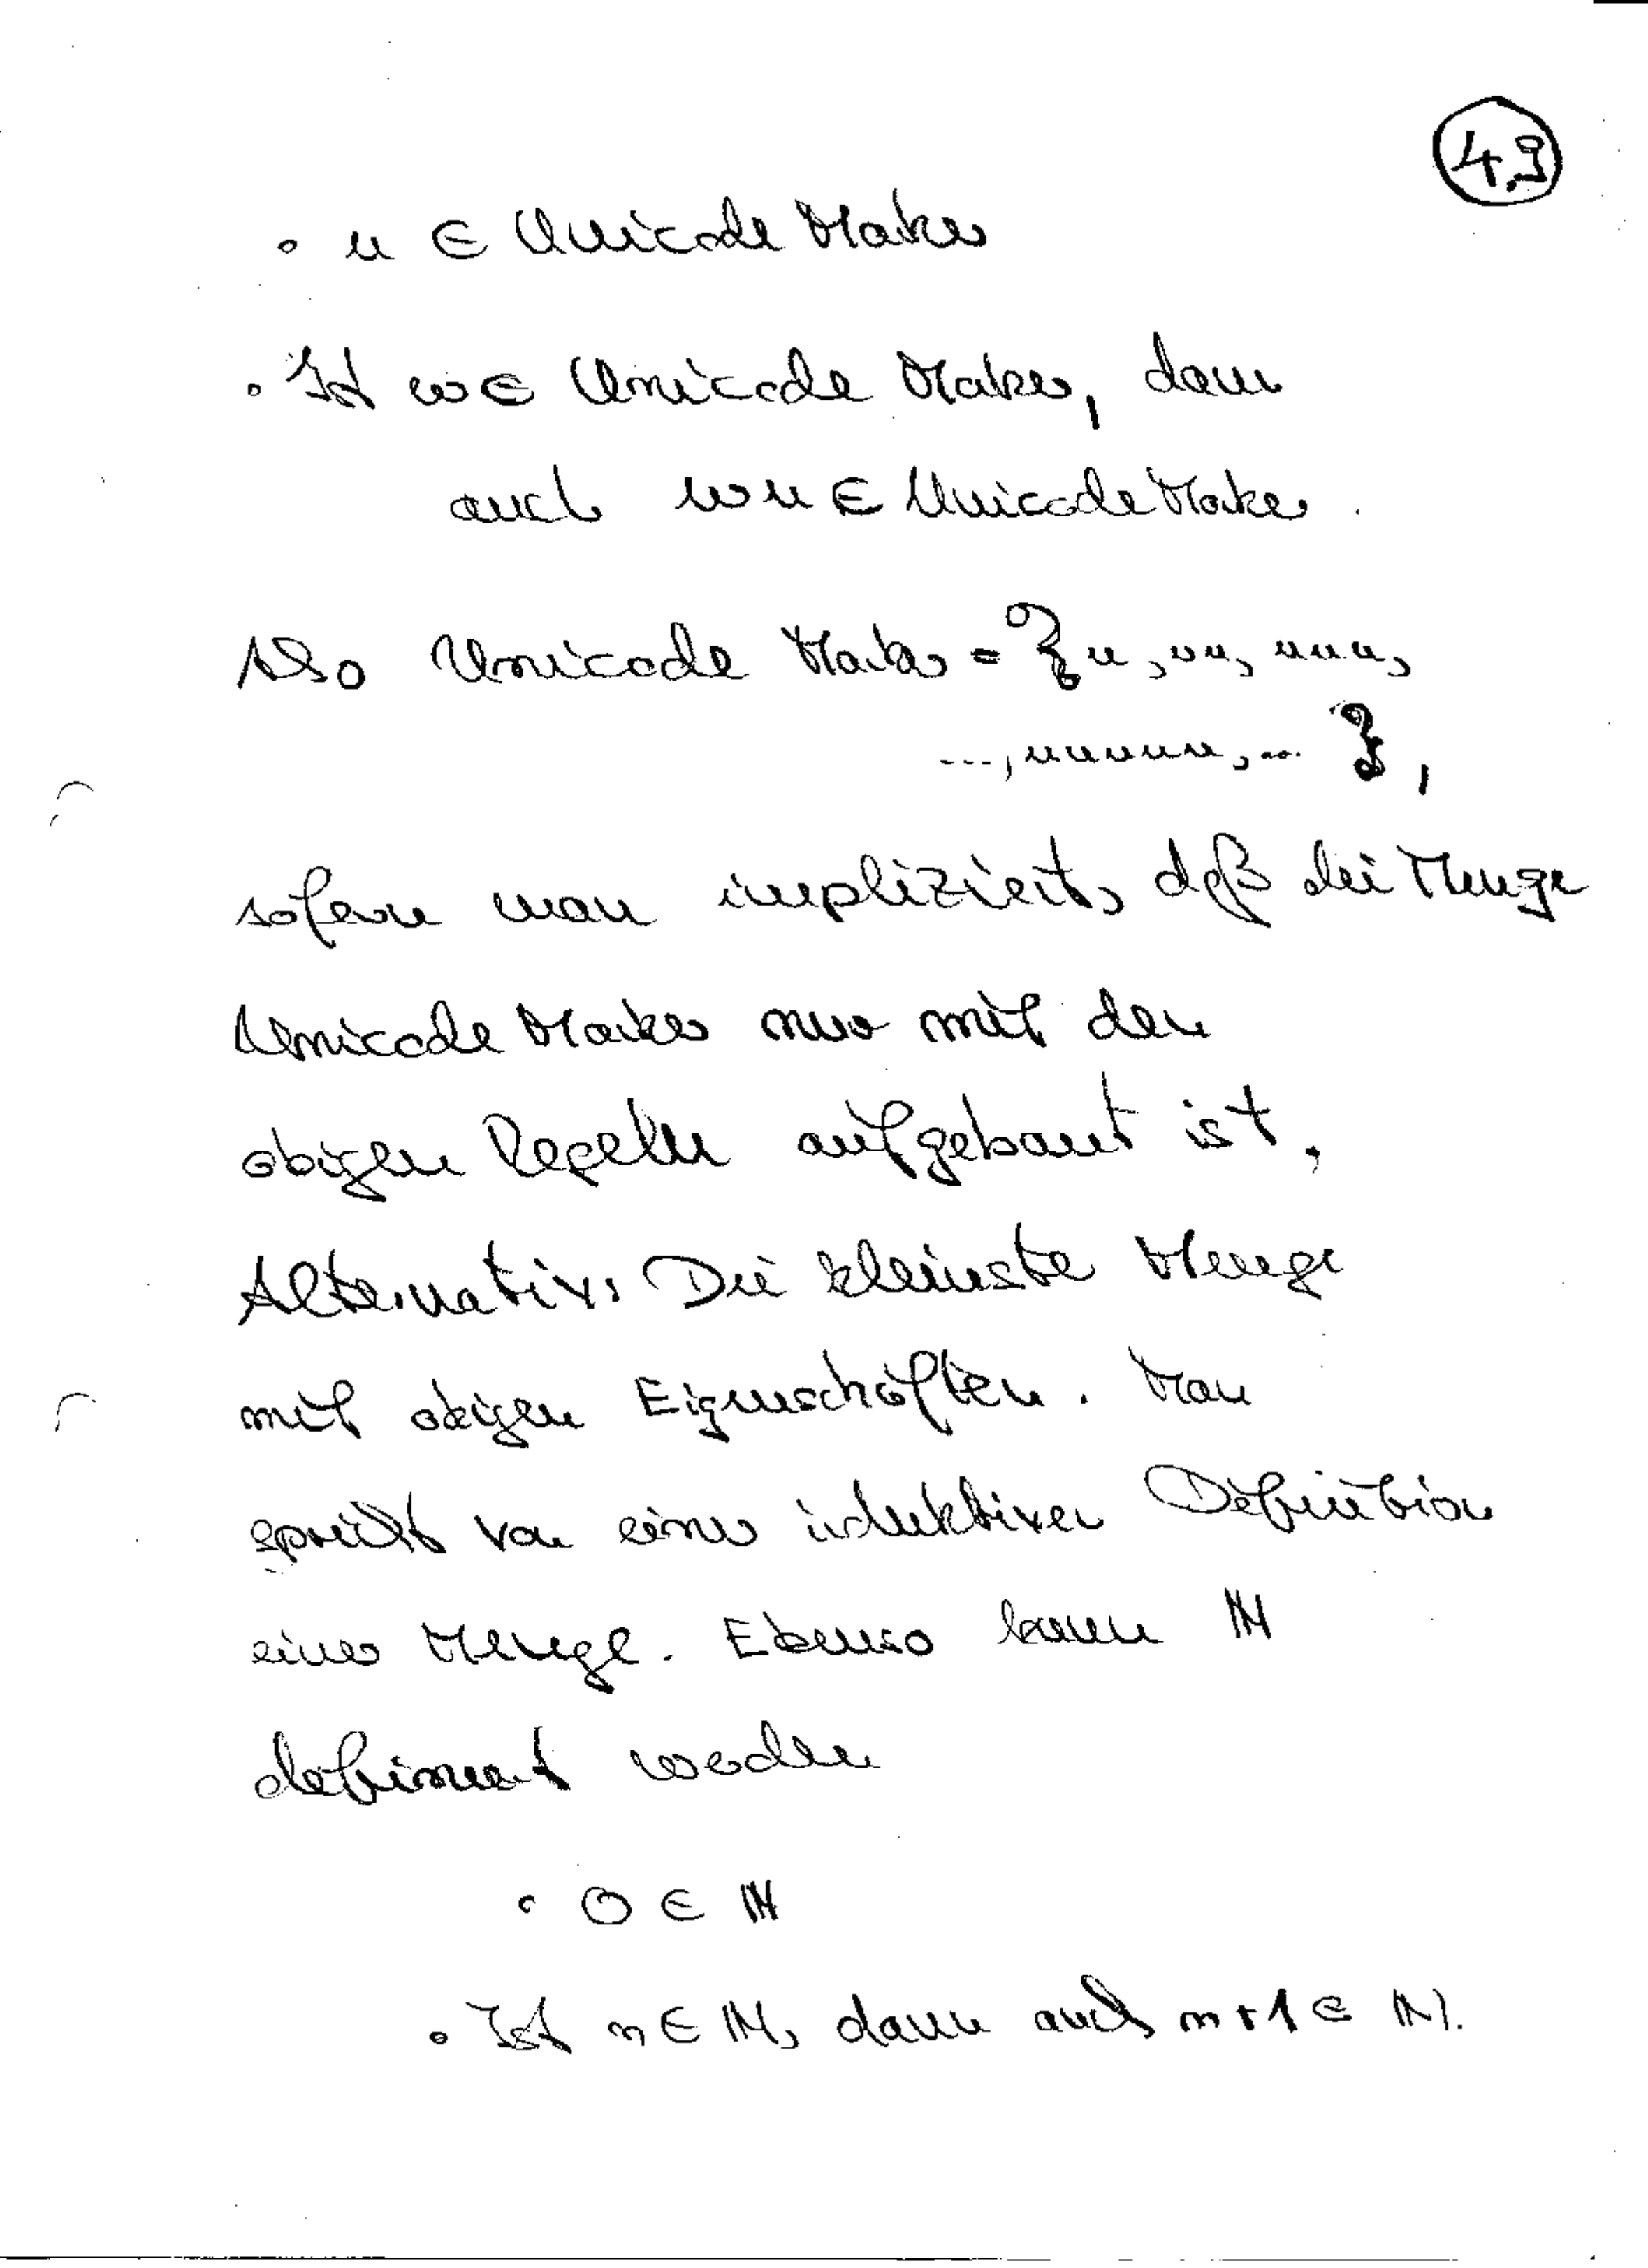 4.9
• u ∈ Unicode Marker
• Ist w ∈ Unicode Marker, dann
auch wu ∈ Unicode Marker.
Also Unicode Marker = {u, uu, uuu,
..., uuuuu, ... },
sofern man impliziert, daß die Menge
Unicode Marker nur mit den
obigen Regeln aufgebaut ist.
Alternativ: Die kleinste Menge
mit obigen Eigenschaften. Man
spricht von einer induktiven Definition
einer Menge. Ebenso kann ℕ
definiert werden
• 0 ∈ ℕ
• Ist n ∈ ℕ, dann auch n+1 ∈ ℕ.